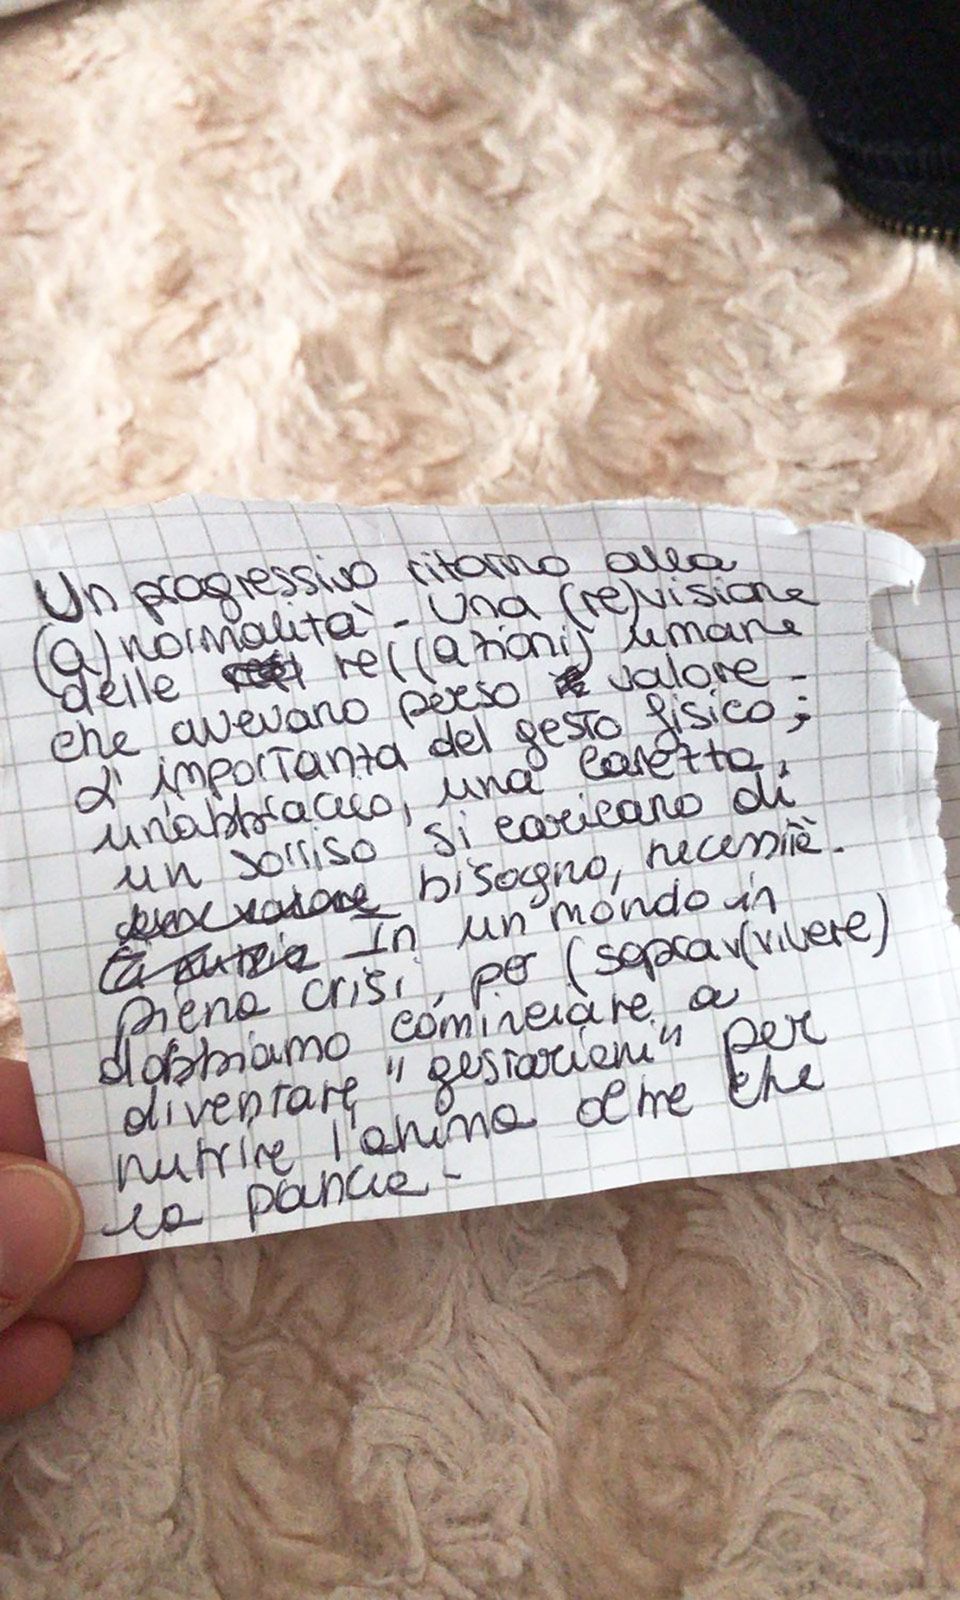 Un progressivo ritorno alla
(a)normalità - Una (re)visione
delle re((azioni) umane
che avevano perso valore -
L'importanza del gesto fisico;
un'abbraccio, una carezza,
un sorriso si caricano di
bisogno, necessità.
In un mondo in
piena crisi, per (soprav(vivere)
dobbiamo cominciare a
diventare "gestariani" per
nutrire l'anima oltre che
la pancia -